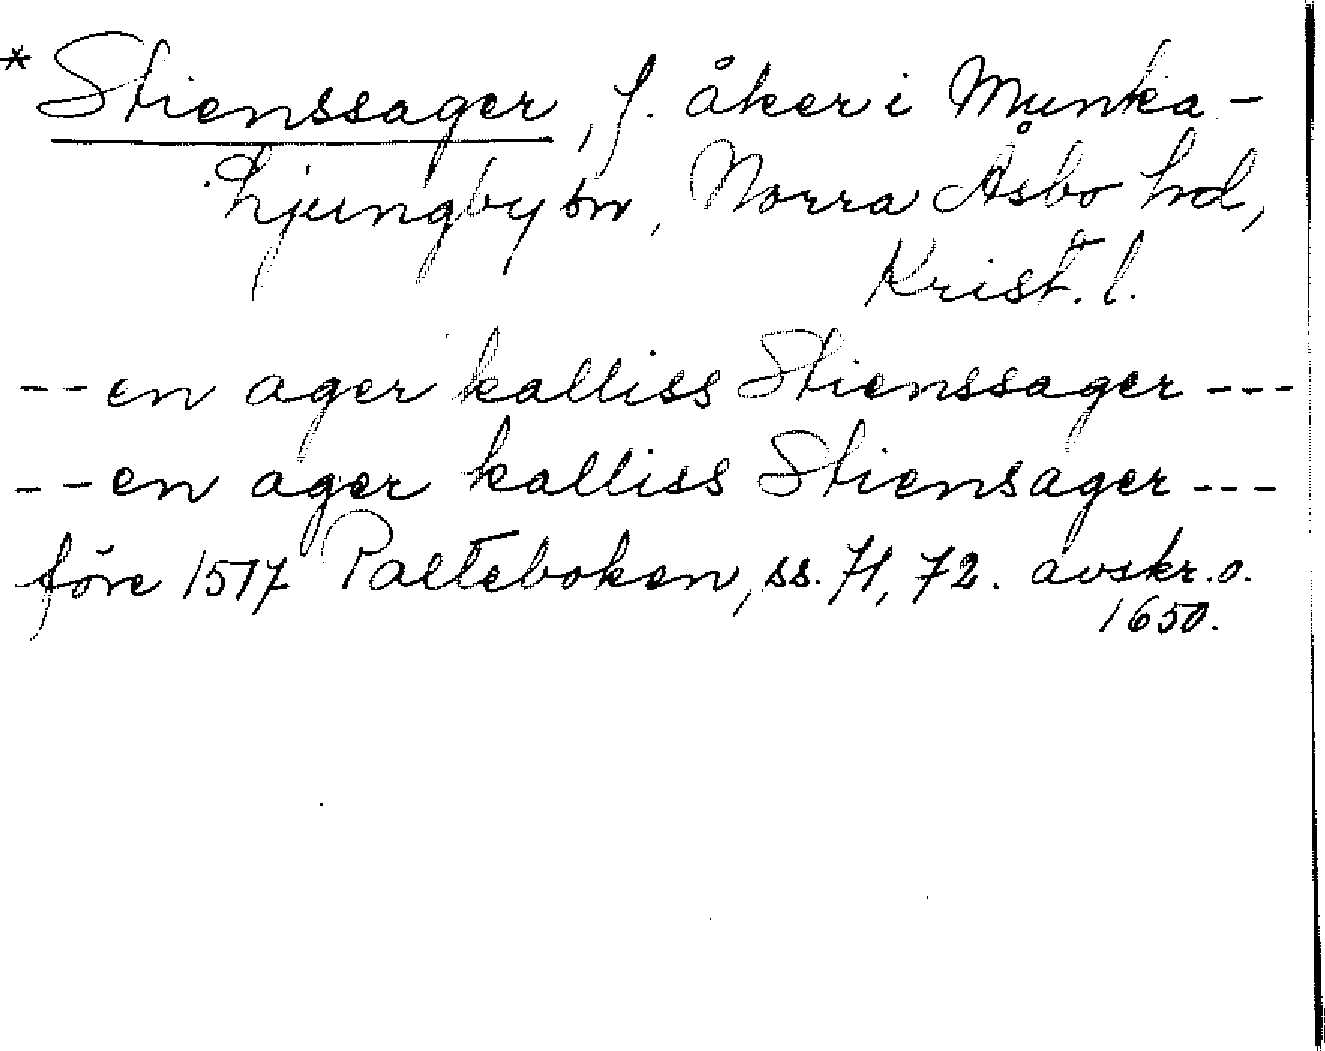 * Stienssager, f. åker i Munka-
Ljungby sn, Norra Åsbo hd,
Krist. l.
-- en ager kalliss Stienssager ---
-- en ager kalliss Stiensager ---
före 1517 Palteboken, ss. 71, 72. avskr. o.
1650.